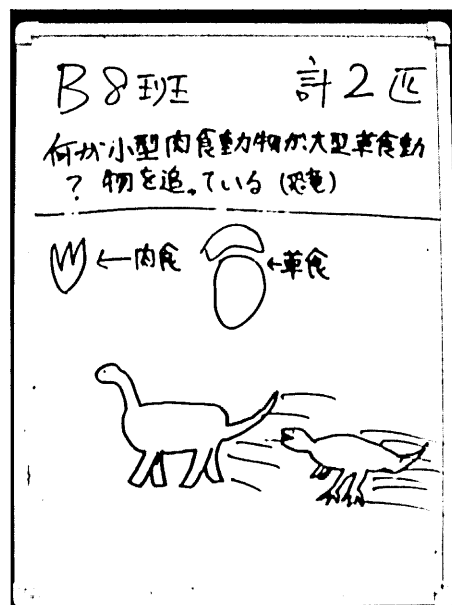 B8班 計2匹
何が小型肉食動物が大型草食動
? 物を追っている(恐竜)
←肉食 ←草食